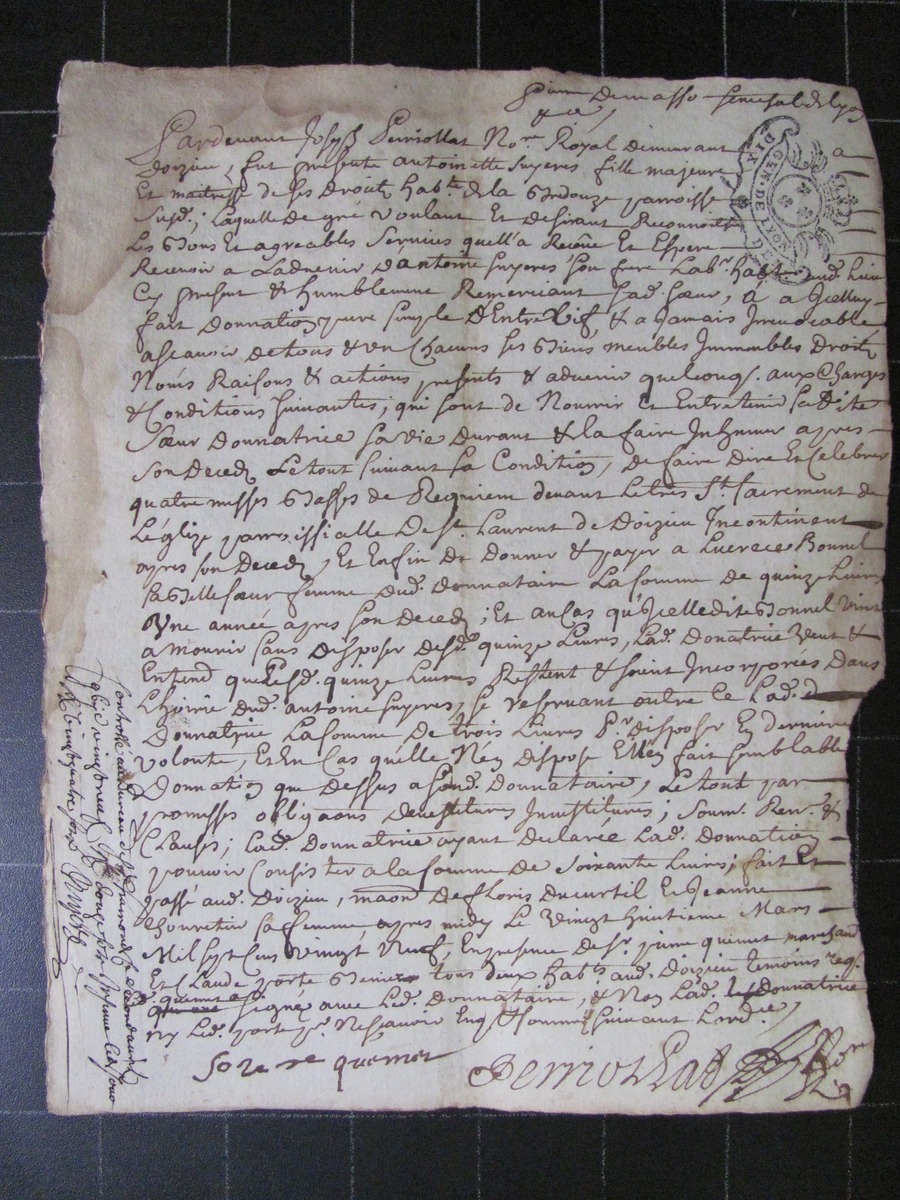 pierre Demasso seneschal de lyon
&a
Pardevant Joseph Perriollat No.re Royal demeurant a
Doizieu, fut presente antoinette suyeres fille majeure
Et maitresse de ses Droits hab.te de la parroisse
Susd.; Laquelle de gré voulant Et desirant Reconnoitre
Les bons Et agreables Services quell'a Receue Et Espere
Recevoir a Ladvenir d'antoine suyeres son frere Lab.r hab.t aud. lieu
Cy present & humblement Remerciant Lad. sœur, a a Jcelluy
fait Donnation pure simple D'Entre Vif, & a jamais Irrevocable
ascavoir de tous & un Chacuns ses biens meubles Immeubles Droits
Noms Raisons & actions presents & advenir quelconq. aux Charges
& Conditions suivantes, qui sont de Nourrir Et Entretenir sa dite
Sœur Donnatrice sa vie Durant & la faire Inhumer apres
Son Deced Le tout suivant sa Condition, de faire Dire Et Celebrer
quatre messes basses de Requiem devant Le tres S.t sacrement de
L'églize parroissialle De S.t Laurent de Doizieu Incontinent
apres son Deced, Et Enfin de Donner & payer a Lucrece Bonnel
sa belle sœur femme dud. donnataire La somme de quinze Livres
Une année apres son Deced; Et au Cas qu'Jcelle dite Bonnel vint
a Mourir sans disposer desd. quinze Livres, Lad. Donatrice veut &
Entend que Lesd. quinze Livres Restent & soient Incorporées Dans
L'hoirie dud. antoine suyeres, se reservant outre ce Lad.
Donnatrice La somme de trois Livres P.r disposer En derniere
volonté, Et En Cas qu'elle N'en dispose Elle en fait semblable
Donnation que dessus a sond. Donnataire, Le tout par
promesses obligaons devestitures Investitures; soum. Ren. &
Clauses; Lad. Donnatrice ayant declaree Lad. Donnation
pouvoir Consister a la somme de soixante Livres; fait Et
passé aud. Doizieu, maon de floris ducurtil Et Jeanne
sa femme apres midy Le vingt huitieme Mars
Mil sept Cens vingt Neuf, En presence de S.r pierre quemet marchand
Et Claude porte tous deux hab.ts aud. Doizieu temoins req.
quemet a signé avec Led. Donnataire, & Non Lad. Donnatrice
ny Led. porte p.r Ne scavoir Enq. & sommés suivant L'ord.ce
quemet Perriollat
Controllé au Bureau de S.t chamond